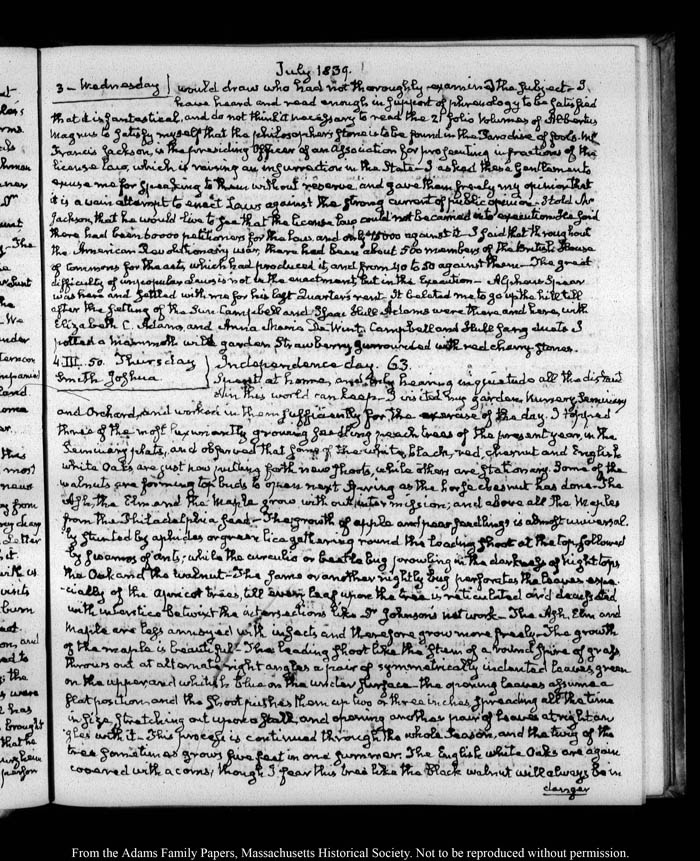 July 1839.
3 - Wednesday would draw who had not thoroughly examined the subject - I
have heard and read enough in support of phrenology to be satisfied
that it is fantastical, and do not think it necessary to read the 21 folio volumes of Albertus
Magnus to satisfy myself that the philosopher's stone is to be found in the Paradise of fools. Mr
Francis Jackson, is the presiding Officer of an association for prosecuting infractions of the
license law, which is raising an insurrection in the State - I asked these Gentlemen to
excuse me for speaking to them without reserve, and gave them freely my opinion that
it is a vain attempt to enact Laws against the strong current of public opinion - I told Mr
Jackson, that he would live to see that the license law could not be carried into execution. He said
there had been 60000 petitioners for the law, and only 15000 against it. I said that throughout
the American Revolutionary war, there had been about 500 members of the British House
of Commons for the acts, which had produced it, and from 40 to 50 against them - The great
difficulty of unpopular Laws is not in the enactment, but in the execution - Alpheus Spear
was here and settled with me for his last Quarter's rent. It belated me to go up the hill till
after the setting of the Sun. Campbell and Isaac Hull Adams were there, and here, with
Elizabeth C. Adams, and Anna Maria De Wint. Campbell and Hull sang duets. I
potted a mammoth wild garden Strawberry surrounded with red cherry Stones.
4. III. 50. Thursday Independence day. 63.
Smith Joshua Spent at home, and only hearing inquietude all the distant
din this world can keep - I visited my garden, Nursery, Seminary
and Orchard, and worked in them sufficiently for the exercise of the day. I topped
three of the most luxuriantly growing seedling peach trees of the present year, in the
Seminary plats, and observed that some of the white, black, red, chesnut and English
white Oaks are just now putting forth new shoots, while others are stationary. Some of the
walnuts are forming top buds to open next Spring as the horse chesnut has done. The
Ash, the Elm and the Maple grow without intermission, and above all the Maples
from the Philadelphia seed - The growth of apple and pear seedlings is almost universal-
ly stunted by aphides or green lice gathering round the leading shoot at the top, followed
by swarms of ants; while the curculio or beetle bug prowling in the darkness of night tops
the Oak and the walnut - The same or another nightly bug perforates the leaves espe-
cially of the apricot trees, till every leaf upon the tree is reticulated and decussated
with interstice betwixt the intersections like Dr Johnson's net work - The Ash, Elm and
Maple are less annoyed with insects and therefore grow more freely. The growth
of the maple is beautiful - The leading shoot like the stem of a round spire of grass,
throws out at alternate right angles a pair of symmetrically indented leaves, green
on the upper and whitish blue on the under surface - the opening leaves assume a
flat position, and the shoot pushes them up two or three inches spreading all the time
in size, stretching out upon a stalk, and opening another pair of leaves at right an-
gles with it. This process is continued through the whole season, and the twig of the
tree sometimes grows five feet in one summer. The English white Oaks are again
covered with acorns; though I fear this tree like the black walnut will always be in
danger
From the Adams Family Papers, Massachusetts Historical Society. Not to be reproduced without permission.